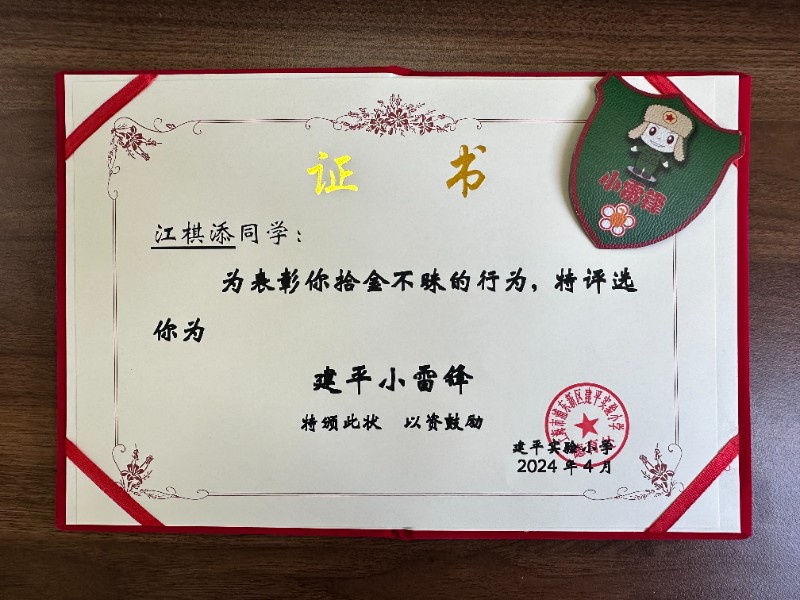 证 书
小雷锋
江棋添同学：
为表彰你拾金不昧的行为，特评选
你为
建平小雷锋
特颁此状 以资鼓励
上海市浦东新区建平实验小学
建平实验小学
2024 年 4 月